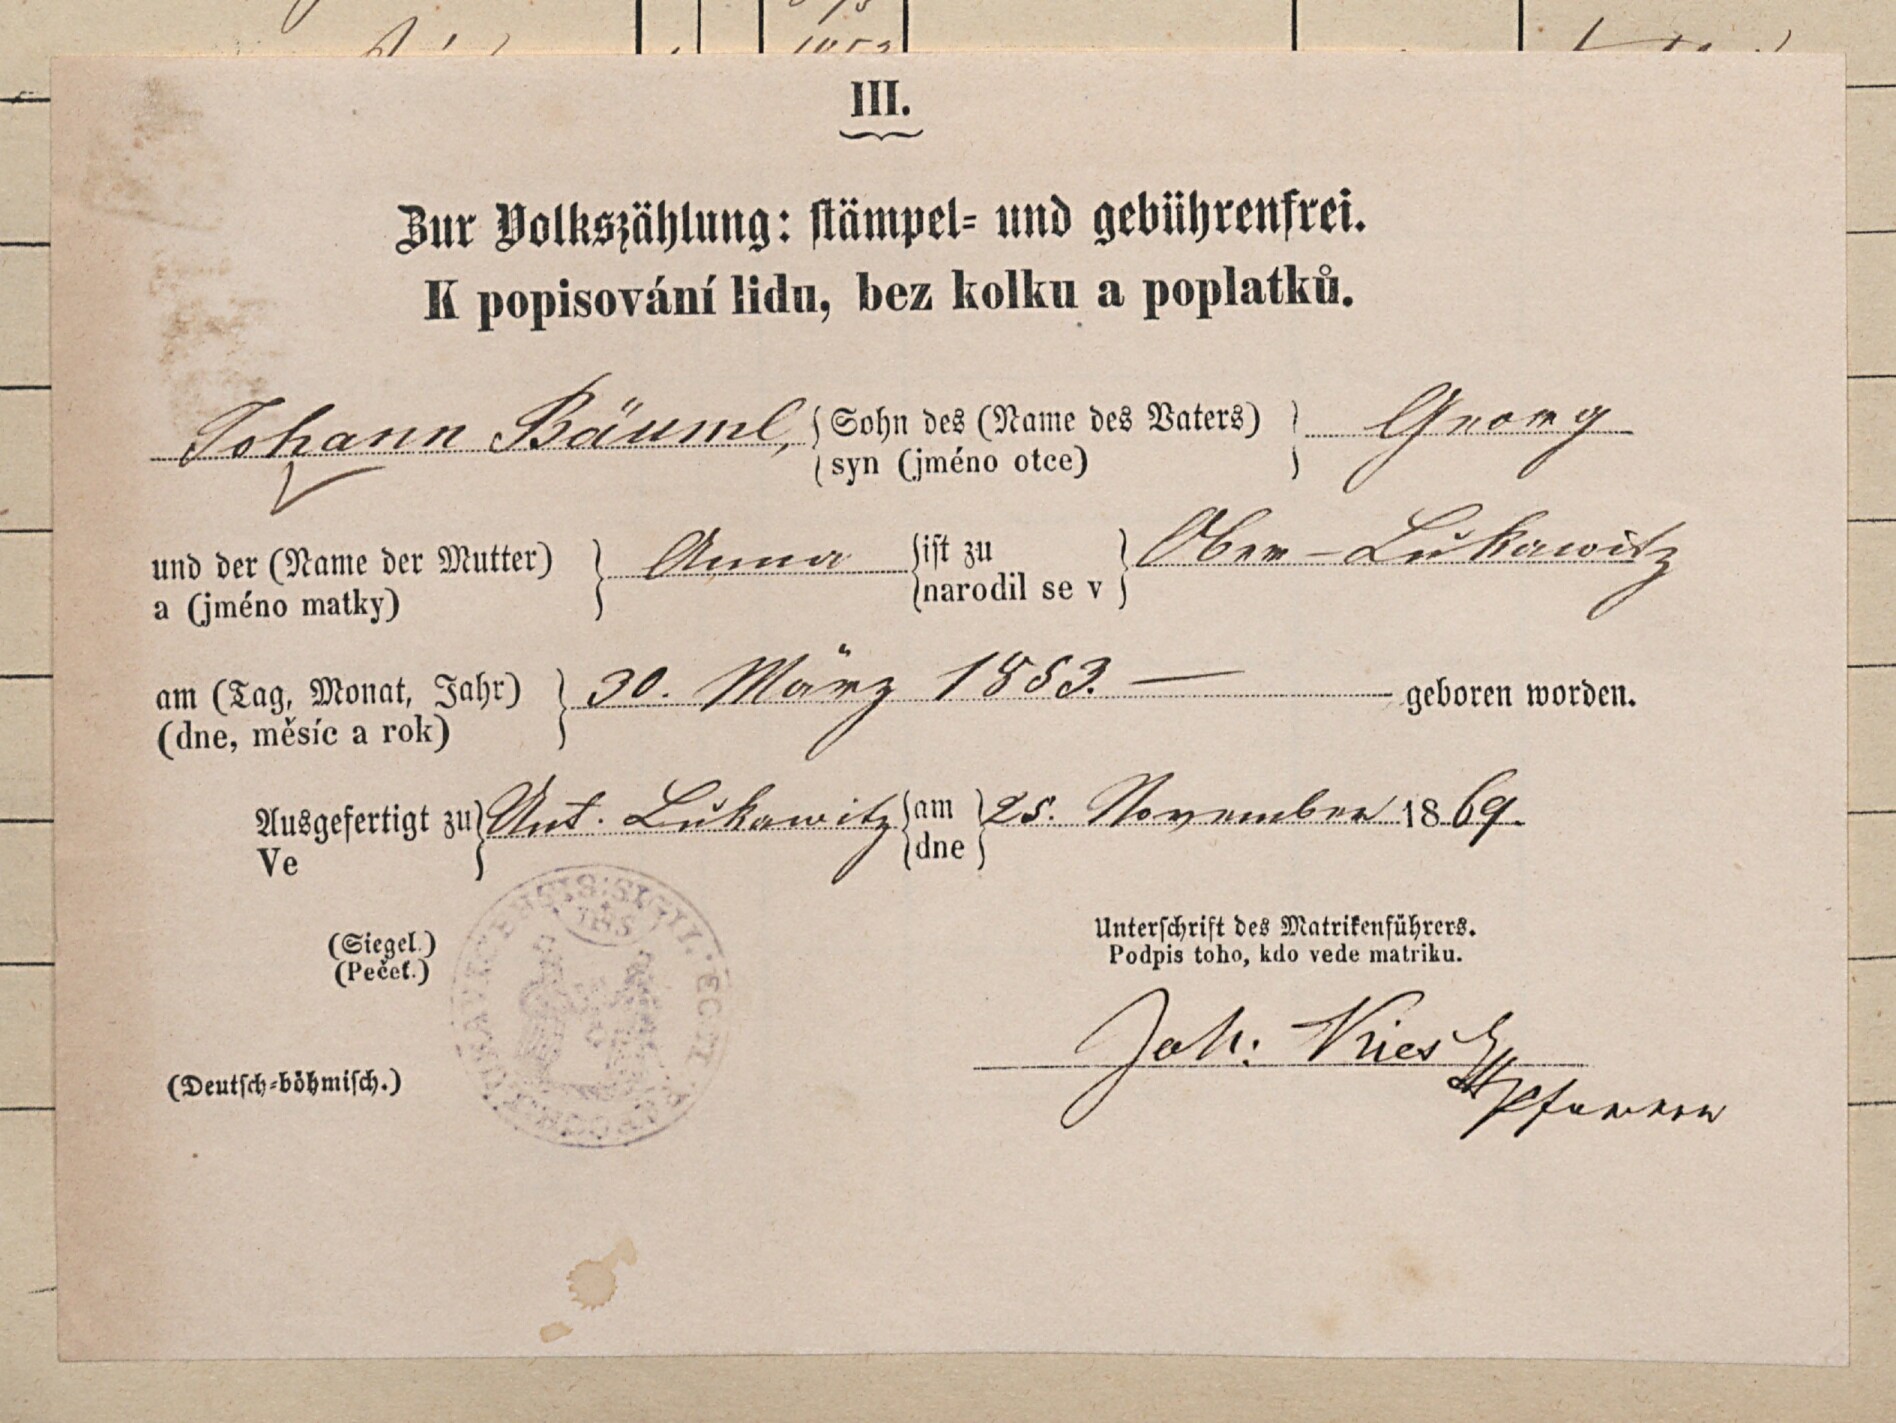 III.
Zur Volkszählung: stämpel- und gebührenfrei.
K popisování lidu, bez kolku a poplatků.
Johann Bäuml, Sohn des (Name des Vaters) Georg
syn (jméno otce)
und der (Name der Mutter) Anna ist zu Ober-Lukawitz
a (jméno matky) narodil se v
am (Tag, Monat, Jahr) 30. März 1853. — geboren worden.
(dne, měsíc a rok)
Ausgefertigt zu Unt. Lukawitz am 25. November 1869.
Ve dne
(Siegel.)
(Pečeť.)
IHS
Unterschrift des Matrikenführers.
Podpis toho, kdo vede matriku.
Joh:
Pfarrer
(Deutsch-böhmisch.)